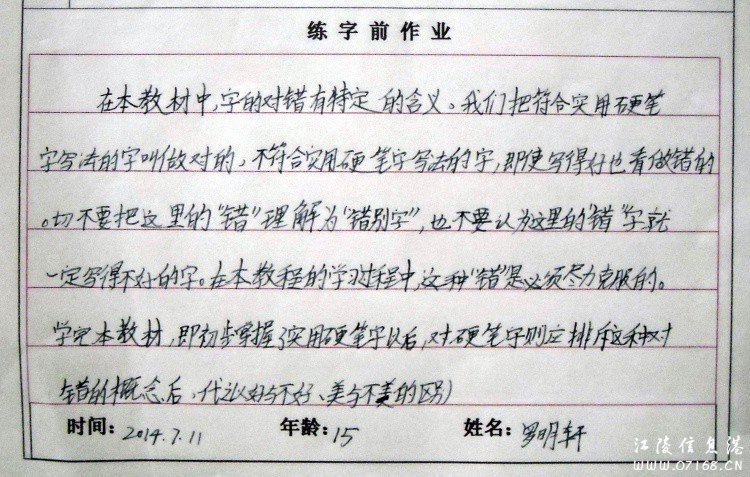 练字前作业
在本教材中,字的对错有特定的含义。我们把符合实用硬笔
字写法的字叫做对的,不符合实用硬笔字写法的字,即使写得好也看做错的
。切不要把这里的“错”理解为“错别字”,也不要认为这里的“错”字就
一定写得不好的字。在本教程的学习过程中,这种“错”是必须尽力克服的。
学完本教材,即初步掌握了实用硬笔字以后,对硬笔字则应排斥这种对
错的概念后,代以好与不好、美与不美的区别
时间: 2014.7.11 年龄: 15 姓名: 罗明轩
江陵信息港
WWW.07168.CN